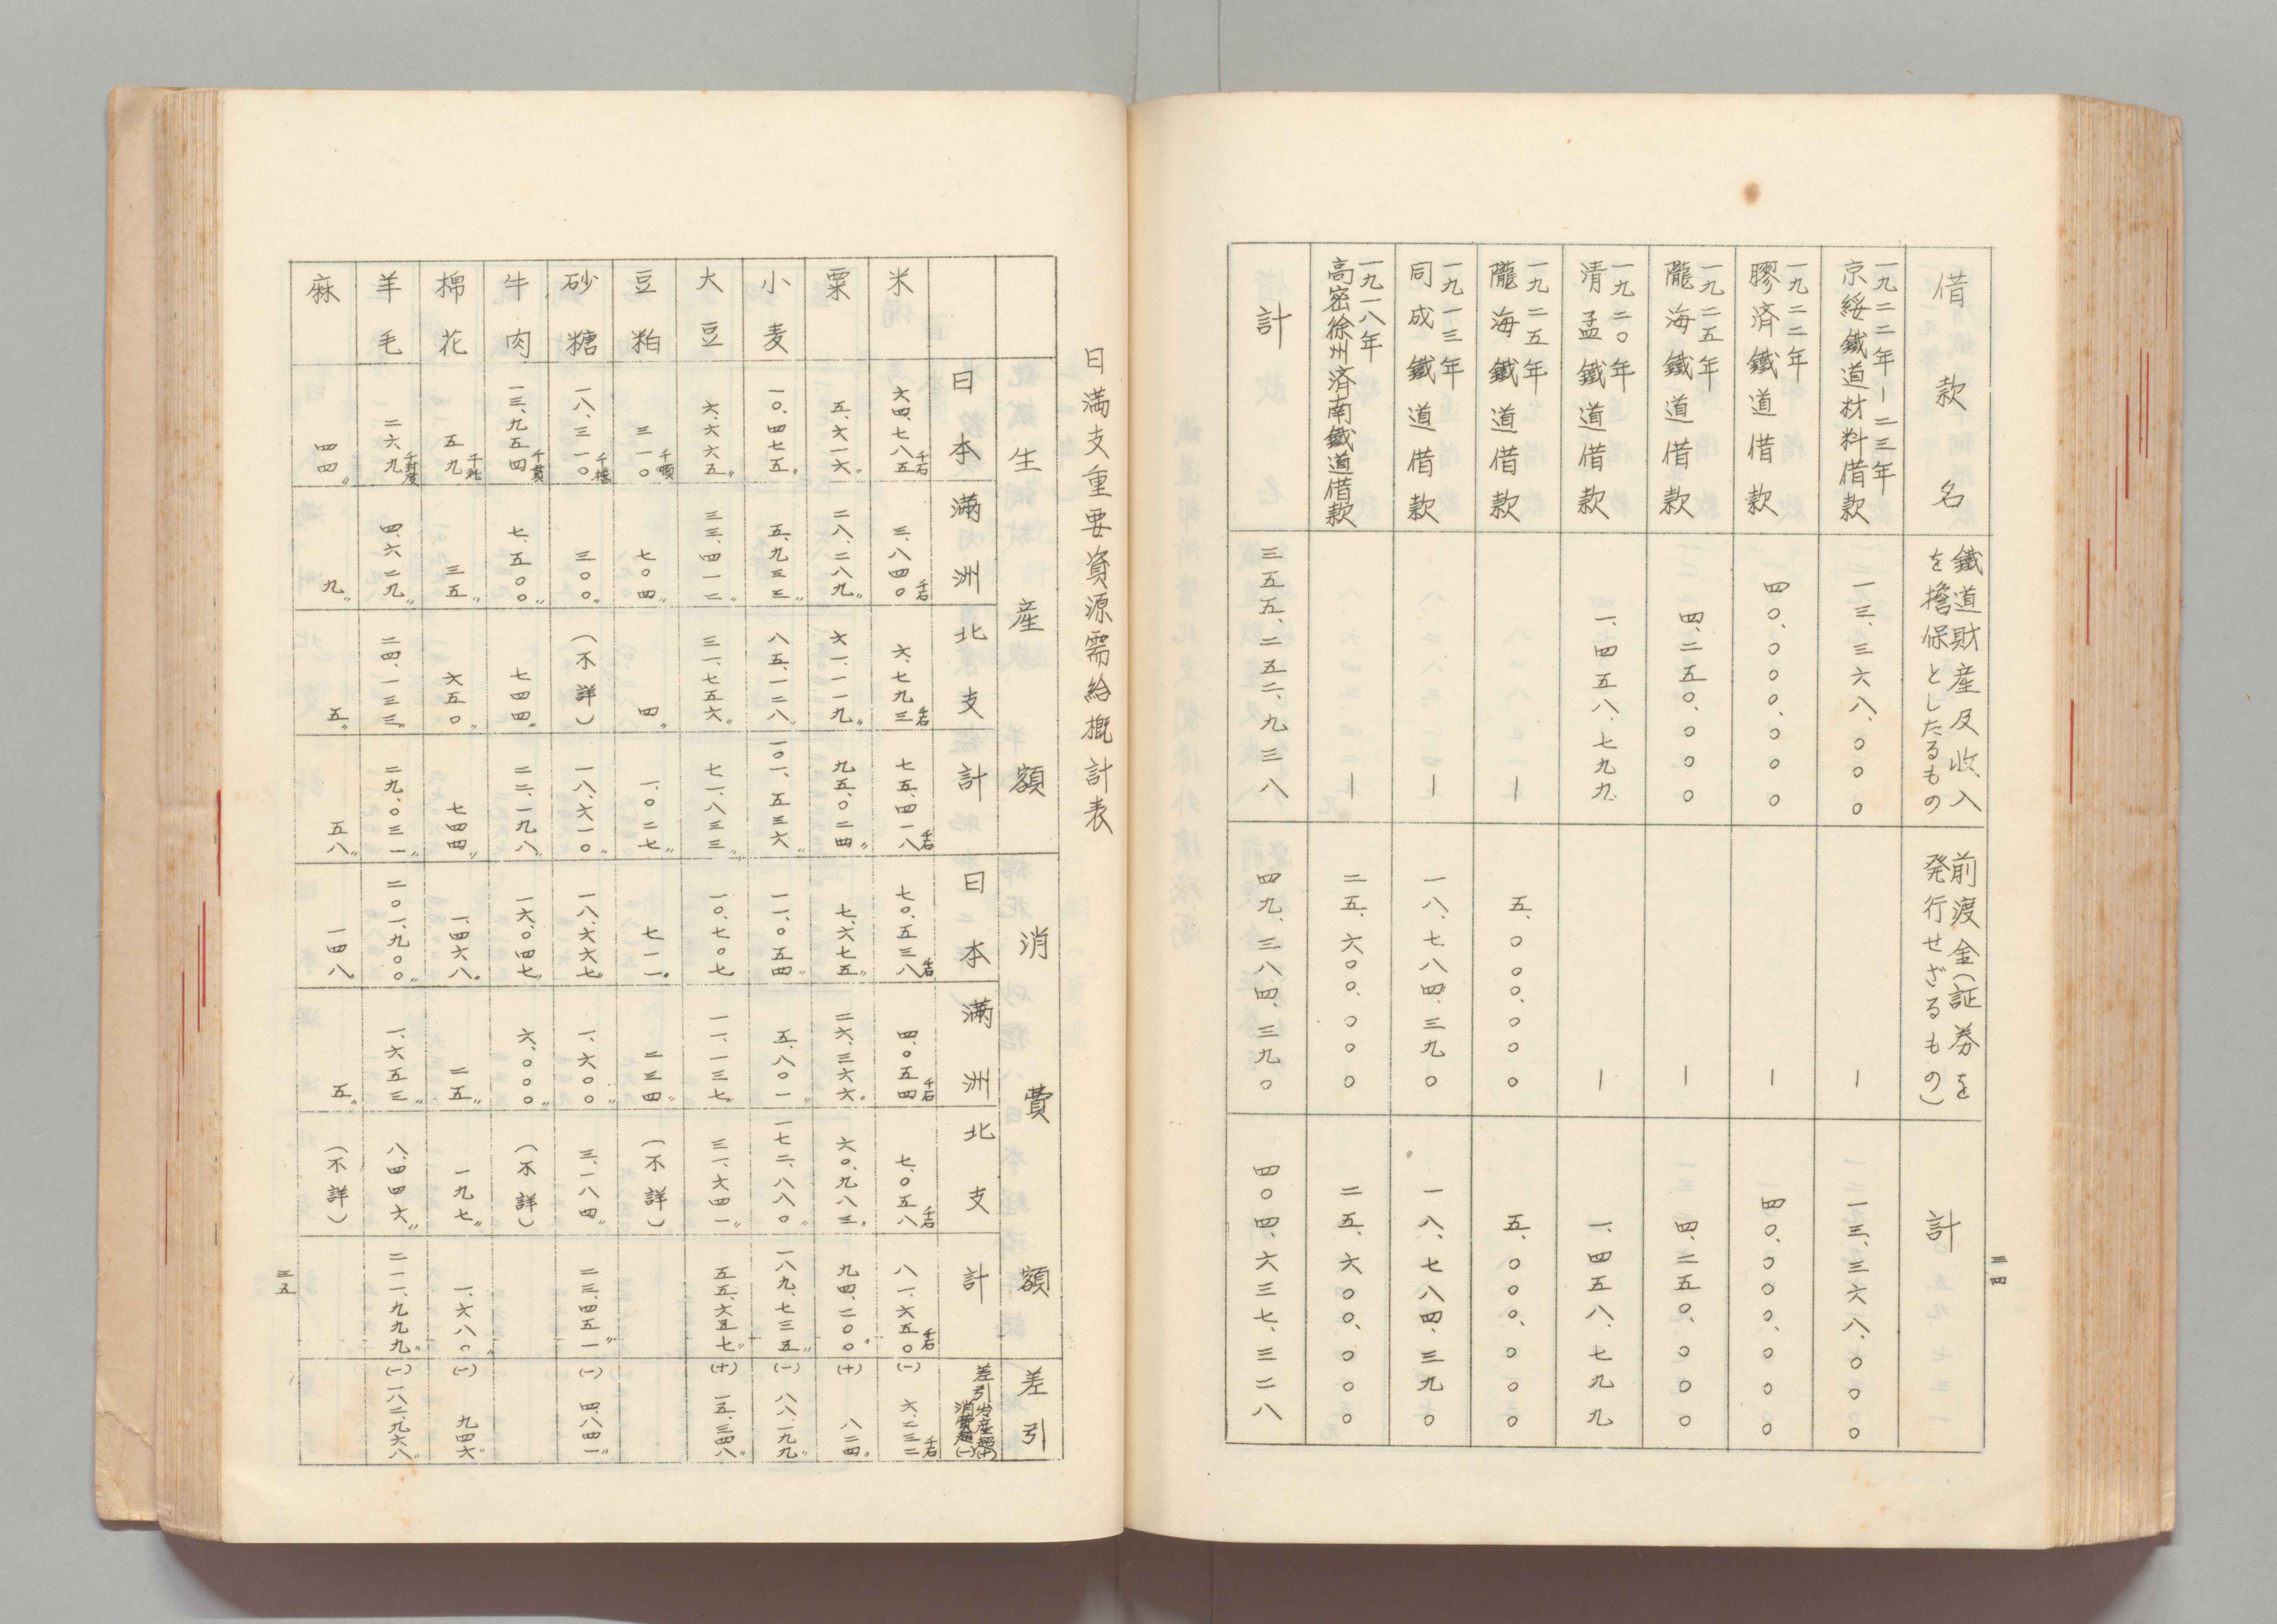 借款名
鐵道財産及收入
を擔保としたるもの
前渡金(証券を
発行せざるもの)
計
一九二二年ー二三年
京綏鐵道材料借款
一三、三六八、〇〇〇
ー
一三、三六八、〇〇〇
一九二二年
膠済鐵道借款
四〇、〇〇〇、〇〇〇
ー
四〇、〇〇〇、〇〇〇
一九二五年
隴海鐵道借款
四、二五〇、〇〇〇
ー
四、二五〇、〇〇〇
一九二〇年
清孟鐵道借款
一、四五八、七九九
ー
一、四五八、七九九
一九二五年
隴海鐵道借款
ー
五、〇〇〇、〇〇〇
五、〇〇〇、〇〇〇
一九一三年
同成鐵道借款
ー
一八、七八四、三九〇
一八、七八四、三九〇
一九一八年
高密徐州済南鐵道借款
ー
二五、六〇〇、〇〇〇
二五、六〇〇、〇〇〇
計
三五五、二五二、九三八
四九、三八四、三九〇
四〇四、六三七、三二八
三四
日満支重要資源需給概計表
生産額
消費額
差引
日本
滿洲
北支
計
日本
滿洲
北支
計
差引生産超(十)
消費超(一)
米
六四、七八五千石
三、八四〇千石
六、七九三千石
七五、四一八千石
七〇、五三八千石
四、〇五四千石
七、〇五八千石
八一、六五〇千石
(一)六、二三二千石
粟
五、六一六〃
二八、二八九〃
六一、一一九〃
九五、〇二四〃
七、六七五〃
二六、三六六〃
六〇、九八三〃
九四、二〇〇〃
(十)八二四〃
小麦
一〇、四七五〃
五、九三三〃
八五、一二八〃
一〇一、五三六〃
一一、〇五四〃
五、八〇一〃
一七二、八八〇〃
一八九、七三五〃
(一)八八、一九九〃
大豆
六、六六五〃
三三、四一二〃
三一、七五六〃
七一、八三三〃
一〇、七〇七〃
一一、一三七〃
三一、六四一〃
五五、六五七〃
(十)一五、三四八〃
豆粕
三一〇千噸
七〇四〃
四〃
一、〇二七〃
七一一〃
二三四〃
(不詳)
砂糖
一八、三一〇千擔
三〇〇〃
(不詳)
一八、六一〇〃
一八、六六七〃
一、六〇〇〃
三、一八四〃
二三、四五一〃
(一)四、八四一〃
牛肉
一三、九五四千貫
七、五〇〇〃
七四四〃
二二、一九八〃
一六、〇四七〃
六、〇〇〇〃
(不詳)
棉花
五九千瓲
三五〃
六五〇〃
七四四〃
一、四六八〃
二五〃
一九七〃
一、六八〇〃
(一)九四六〃
羊毛
二六九千封度
四、六二九〃
二四、一三三〃
二九、〇三一〃
二〇一、九〇〇〃
一、六五三〃
八、四四六〃
二一一、九九九〃
(一)一八二、九六八〃
麻
四四〃
九〃
五〃
五八〃
一四八〃
五〃
(不詳)
三五